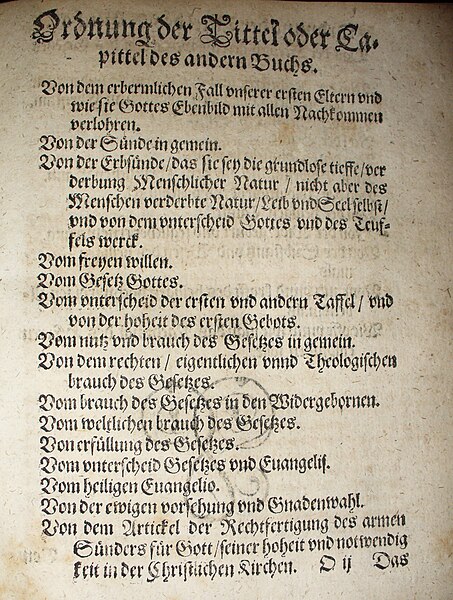 Ordnung der Tittel oder Ca-
pittel des andern Buchs.
Von dem erbermlichen Fall vnserer ersten Eltern vnd
wie sie Gottes Ebenbild mit allen Nachkommen
verlohren.
Von der Sünde in gemein.
Von der Erbsünde/ das sie sey die grundlose tieffe/ ver
derbung Menschlicher Natur/ nicht aber des
Menschen verderbte Natur/ Leib vnd Seel selbst/
vnd von dem vnterscheid Gottes vnd des Teuf-
fels werck.
Vom freyen willen.
Vom Gesetz Gottes.
Vom vnterscheid der ersten vnd andern Taffel/ vnd
von der hoheit des ersten Gebots.
Vom nutz vnd brauch des Gesetzes in gemein.
Von dem rechten/ eigentlichen vnnd Theologischen
brauch des Gesetzes.
Vom brauch des Gesetzes in den Widergebornen.
Vom weltlichen brauch des Gesetzes.
Von erfüllung des Gesetzes.
Vom vnterscheid Gesetzes vnd Euangelij.
Vom heiligen Euangelio.
Von der ewigen vorsehung vnd Gnadenwahl.
Von dem Artickel der Rechtfertigung des armen
Sünders für Gott/ seiner hoheit vnd notwendig
keit in der Christlichen Kirchen. O ij Das